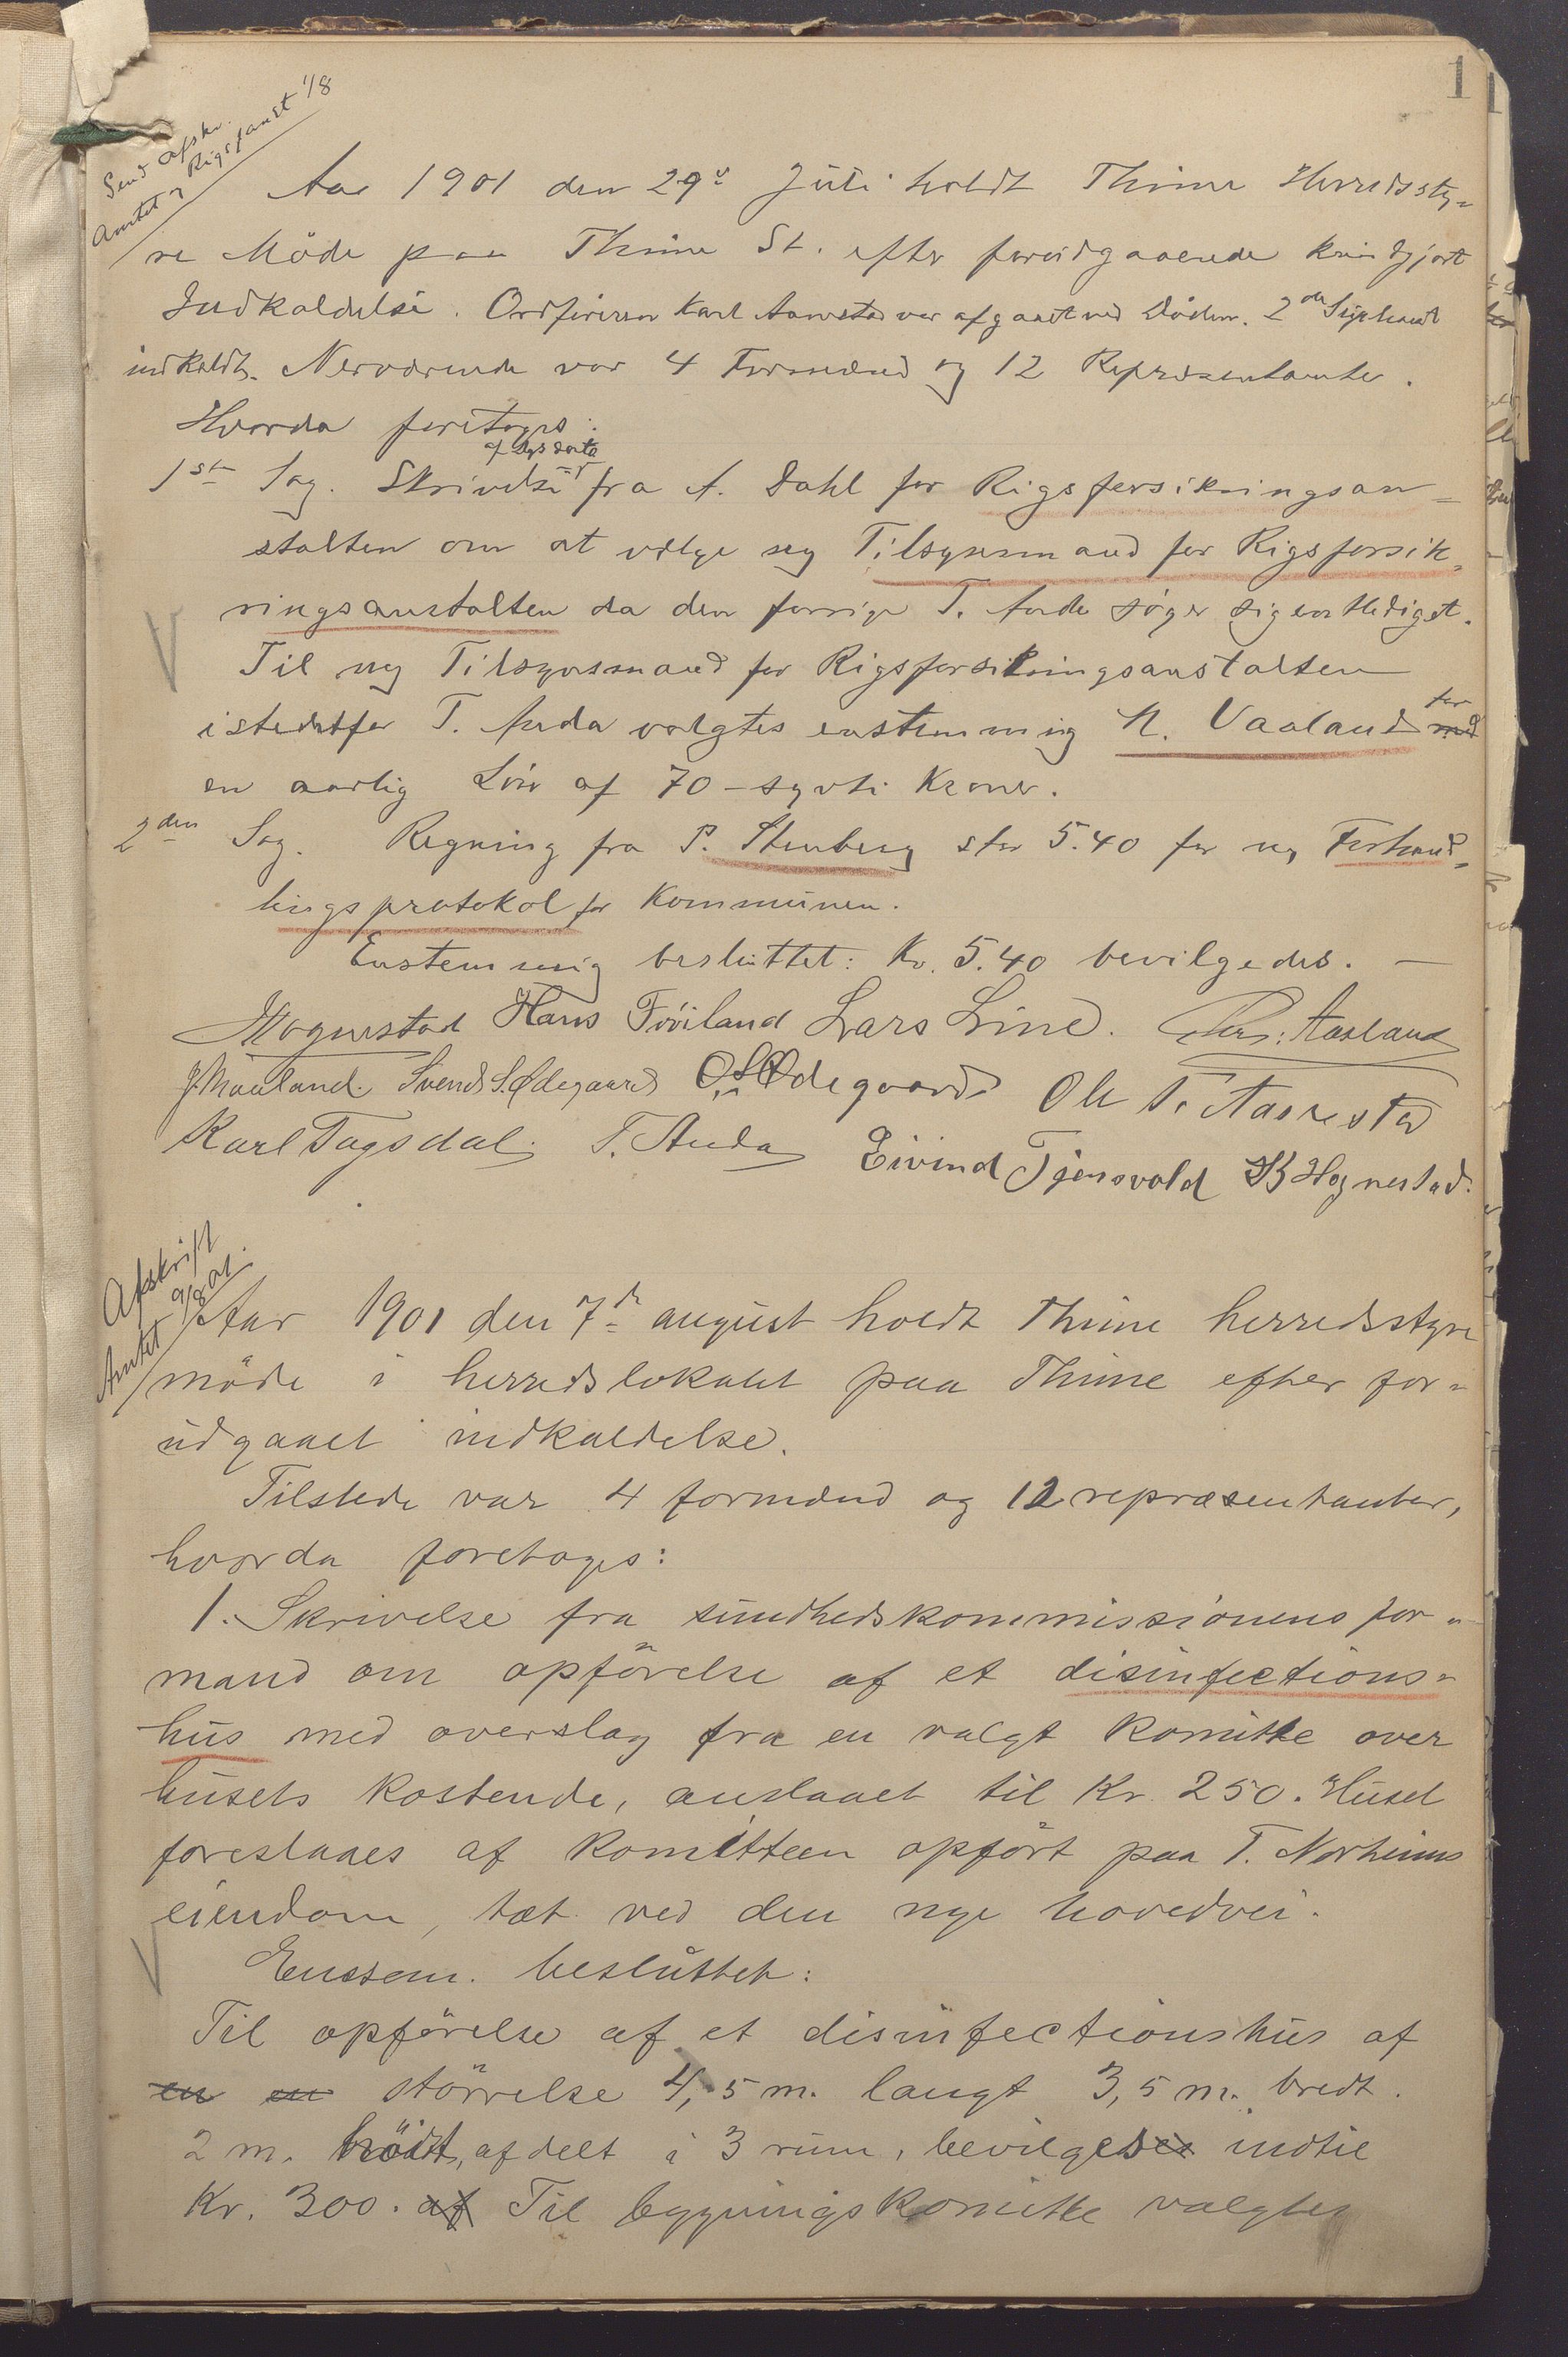 1
Send afskr.
Amtet og Rigsf.anst 1/8
Aar 1901 den 29de Juli holdt Thime Herredssty-
re Möde paa Thime St. efter forudgaaende kundgjort
Indkaldelse. Ordföreren Karl Aarrestad var afgaaet ved Döden. 2den Supleant
indkaldt. Nerværende var 4 Formænd og 12 Repræsentanter.
Hvorda foretoges:
af dags dato
1ste Sag. Skrivelse fra A. Dahl for Rigsforsikringsan-
stalten om at vælge ny Tilsynsmand for Rigsforsik-
ringsanstalten da den forrige T. Anda söger sig entlediget.
Til ny Tilsynsmand for Rigsforsikringsanstalten
istedetfor T. Anda valgtes enstemmig N. Vaaland for
med
en aarlig Lön af 70 - sytti Kroner.
2den Sag. Regning fra P. Stenberg stor 5.40 for ny Forhand-
lingsprotokol for Kommunen.
Enstemmig besluttet: Kr. 5.40 bevilgedes. -
Hognestad Hans Fröiland Lars Line. Chr: Aasland
J. Mauland. Svend S. Ødegaard O. S. Ødegaard Ole T. Aarrestad
Karl Tagsdal. T. Anda Eivind Tjensvold B Hognestad.
Afskrift
Amtet 9/8 01.
Aar 1901 den 7de august holdt Thime herredsstyre
möde i herredslokalet paa Thime efter for-
udgaaet indkaldelse.
Tilstede var 4 formænd og 12 repræsentanter,
hvorda foretoges:
1. Skrivelse fra sundhedskommissionens for-
mand om opförelse af et disinfections-
hus med overslag fra en valgt komitte over
husets kostende, anslaaet til Kr. 250. Huset
foreslaaes af komitteen opfört paa T. Norheims
eiendom, tæt ved den nye hovedvei.
Enstem. besluttet:
Til opförelse af et disinfectionshus af
en en störrelse 4,5 m. langt 3,5 m. bredt.
2 m. höidt, afdelt i 3 rum, bevilgedes indtil
Kr. 300. af Til bygningskomitte valgtes